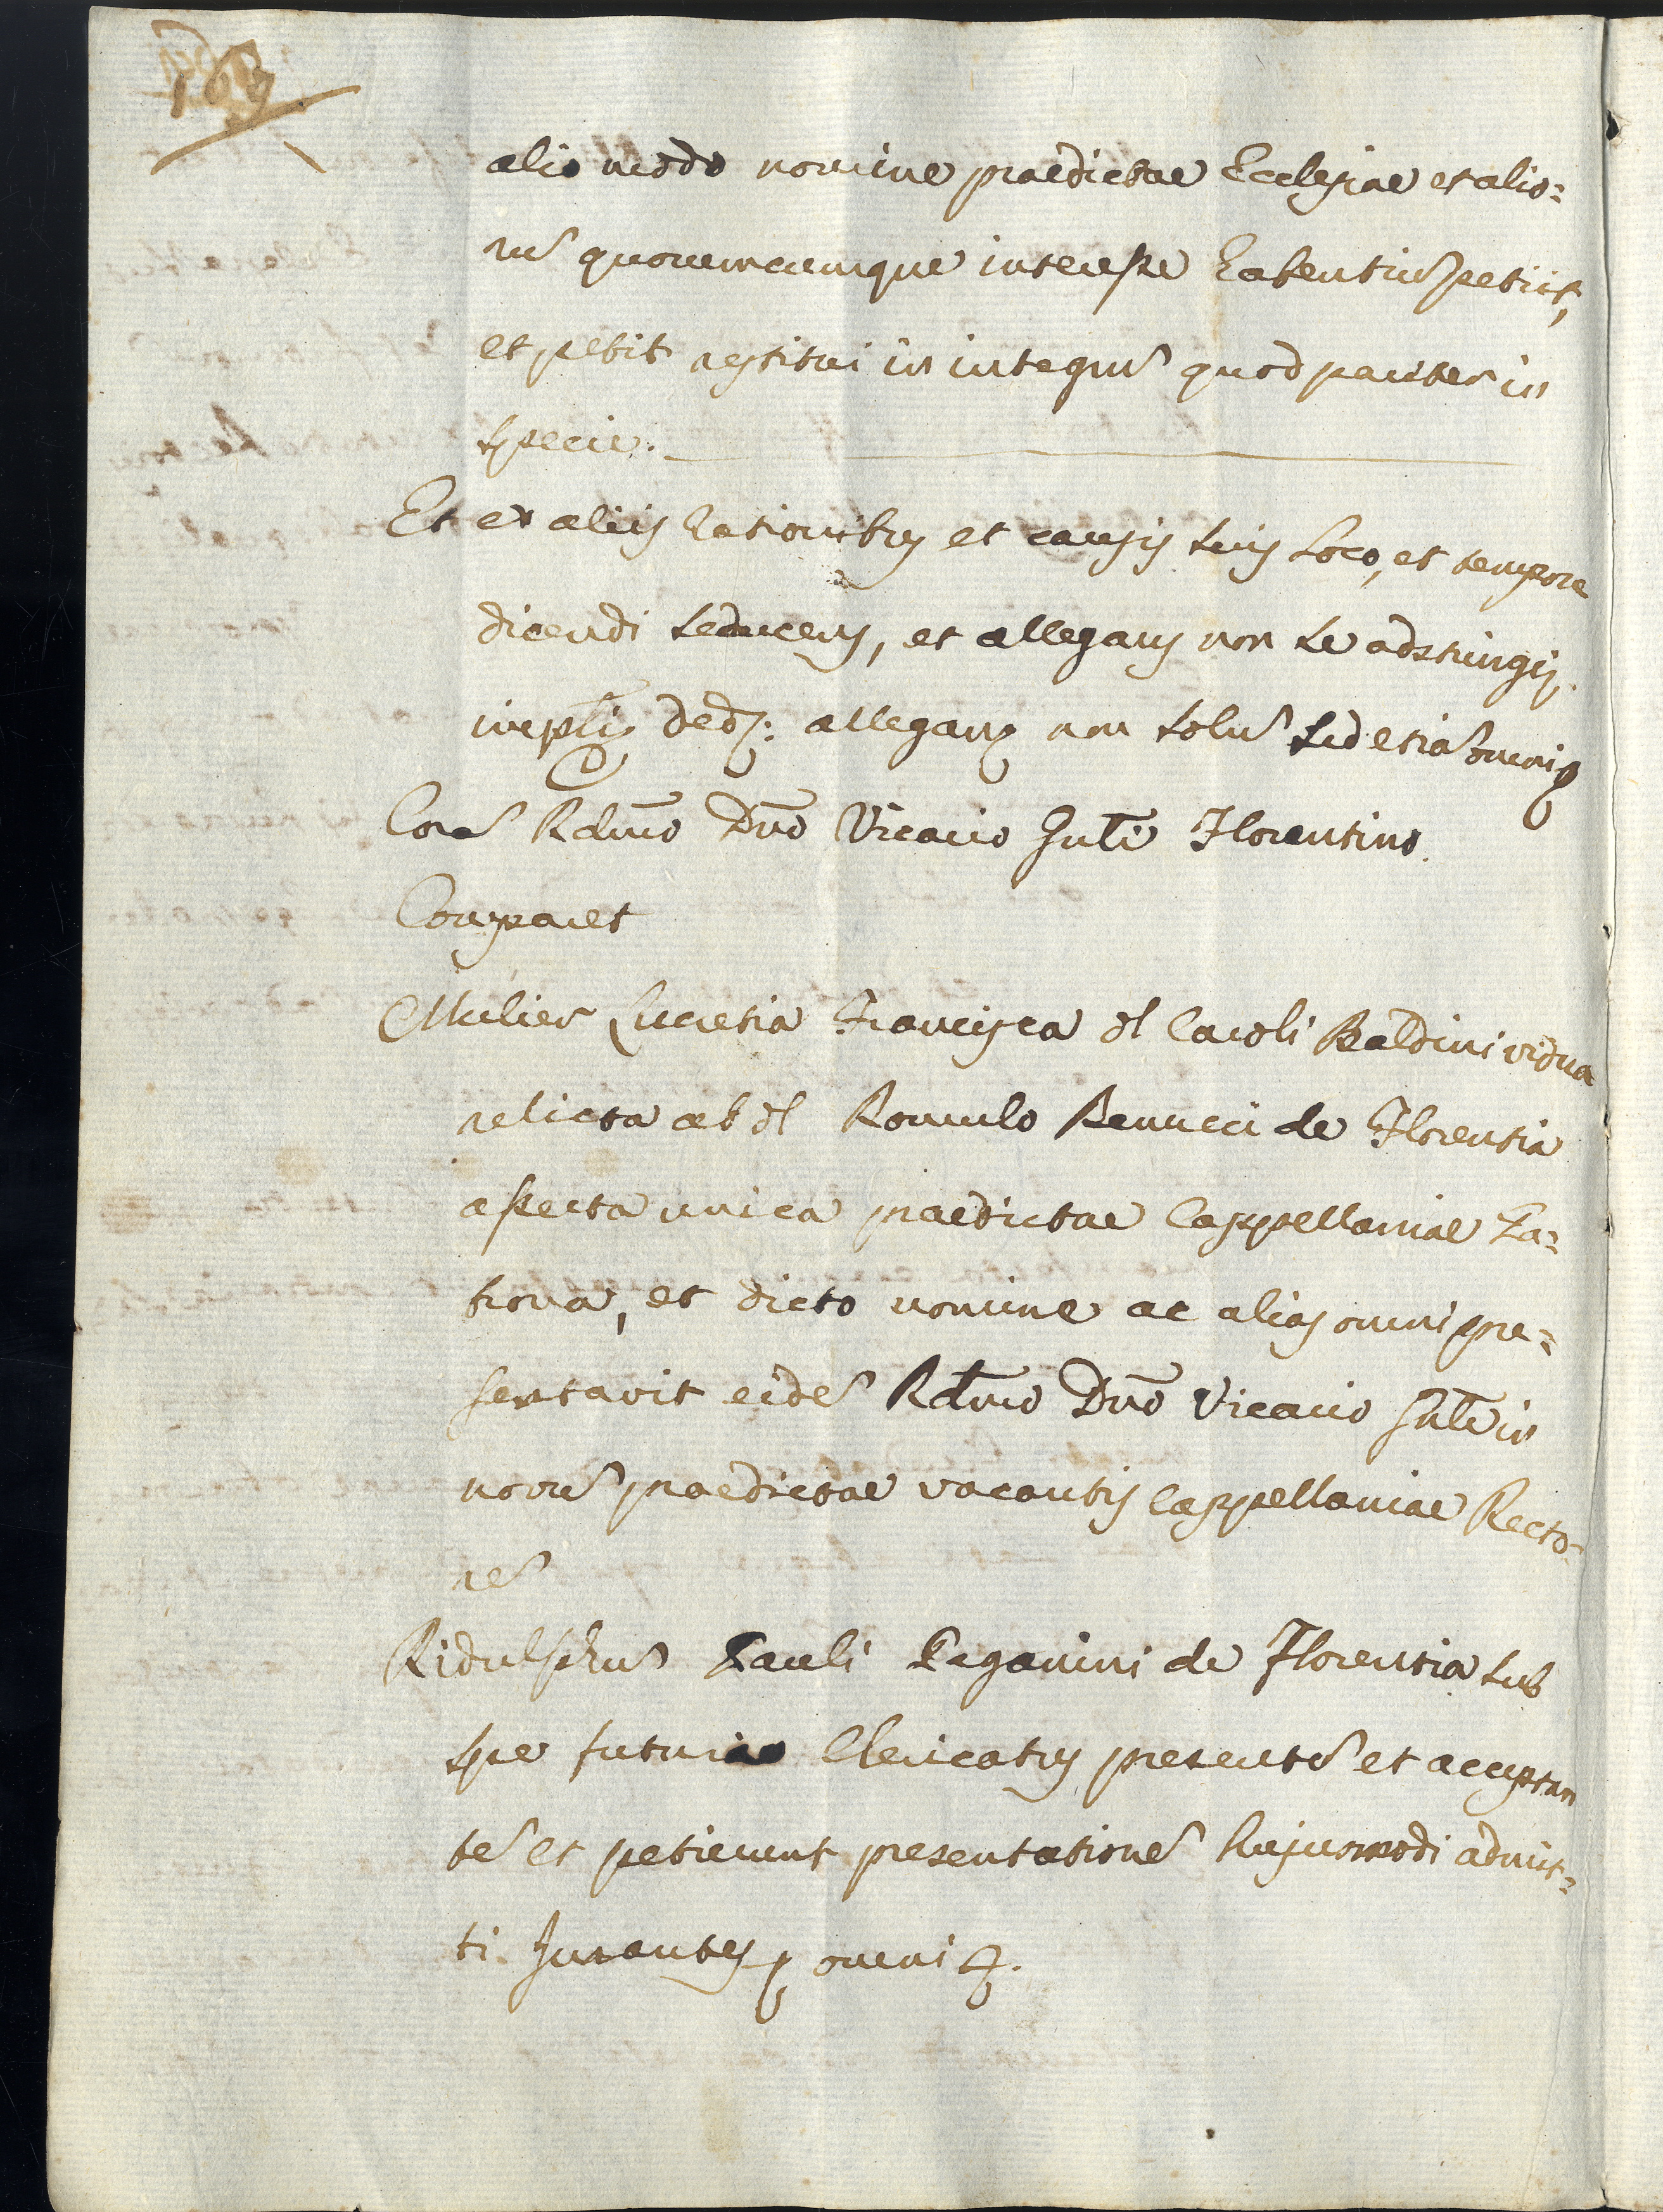 alio modo nomine praedictae Ecclesiae et alio=
rũ quorumcumque interesse habentiũ petiit,
et petit restitui in integrũ quod pariter in
specie.
Et ex aliis rationibus et causis suis loco, et tempore
dicendi deducens, et allegans non se adstringens
allegans non solũ sed etiã omni
Corã Rdmo Dno Vicario Gnli Florentino.
Comparet
Mulier Lucretia Francisca ol Caroli Baldini vidua
relicta ab ol Romulo Benucci de Florentia
asserta unica praedictae Cappellaniae Pa=
trona, et dicto nomine ac alias omni pre=
sentavit eidẽ Rdmo Dno Vicario Gnli in
novũ praedictae vacantis Cappellaniae Recto=
rẽ
Ridulphus Pauli Paganini de Florentia sub
spe futuri Clericatus presentẽ et acceptan
tẽ et petierunt presentationẽ hujusmodi admit=
ti. Jurantes omni